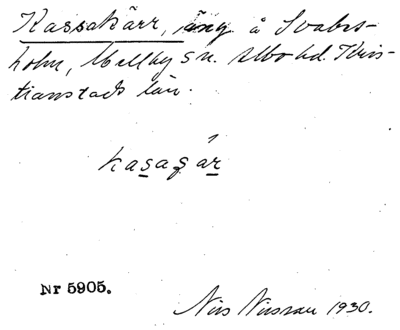 Kassakärr, äng å Svabes-
holm, Mellby sn. Albo hd. Kris-
tianstads län.
kasagár
Nr 5905.
Nils Nilsson 1930.